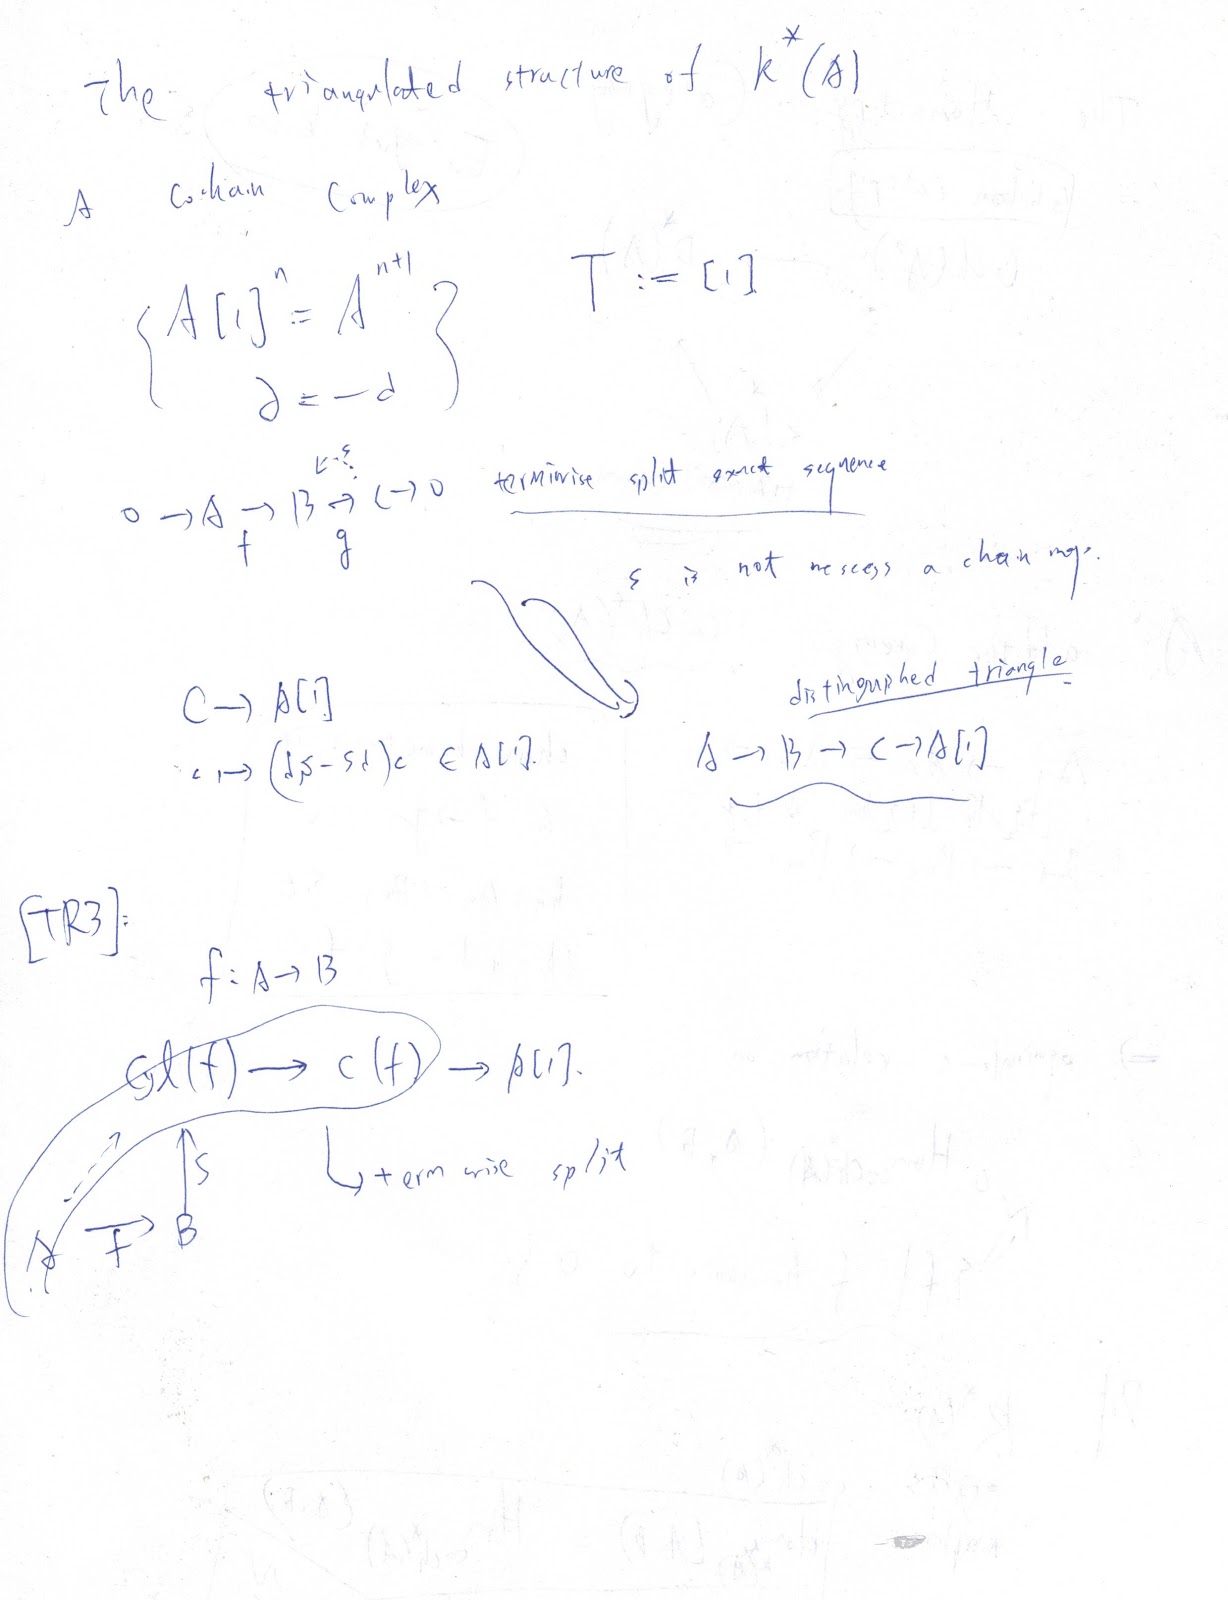 The triangulated structure of K*(A)
A cochain complex
{A[1]^n = A^{n+1}
∂ = -d}
T := [1]
← s
0 → A → B → C → 0 termwise split exact sequence
f g
s is not nescess a chain map.
distinguished triangle
C → A[1]
c ↦ (ds - sd)c ∈ A[1].
A → B → C → A[1]
[TR3]:
f: A → B
Cyl(f) → C(f) → A[1].
s
↳ termwise split
A → B
f